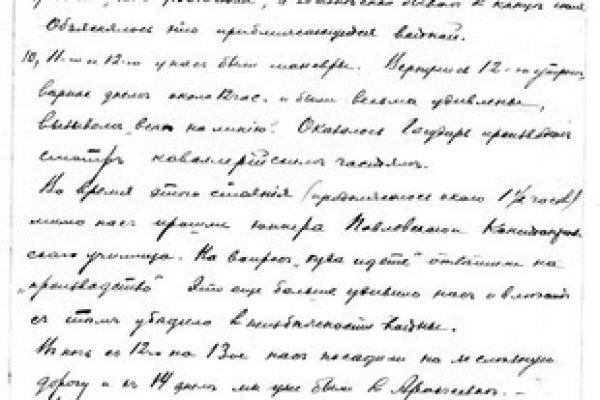 Объяснялось это приближающейся войной.
10, 11-го и 12-го у нас были маневры. Вернулись 12-го утром,
вернее днем около 12 час. и были весьма удивлены,
вызывом "всех на линию". Оказалось Государь производил
смотр кавалерийским частям.
Во время этого стояния (продолжалось около 1½ часов)
мимо нас прошли юнкера Павловского
ского училища. На вопрос "куда идете" ответили на
"производство" Это еще больше удивило нас и
с тем убедило в неизбежности войны.
В ночь с 12го на 13ое нас посадили на железную
дорогу и 14 днем мы уже были в